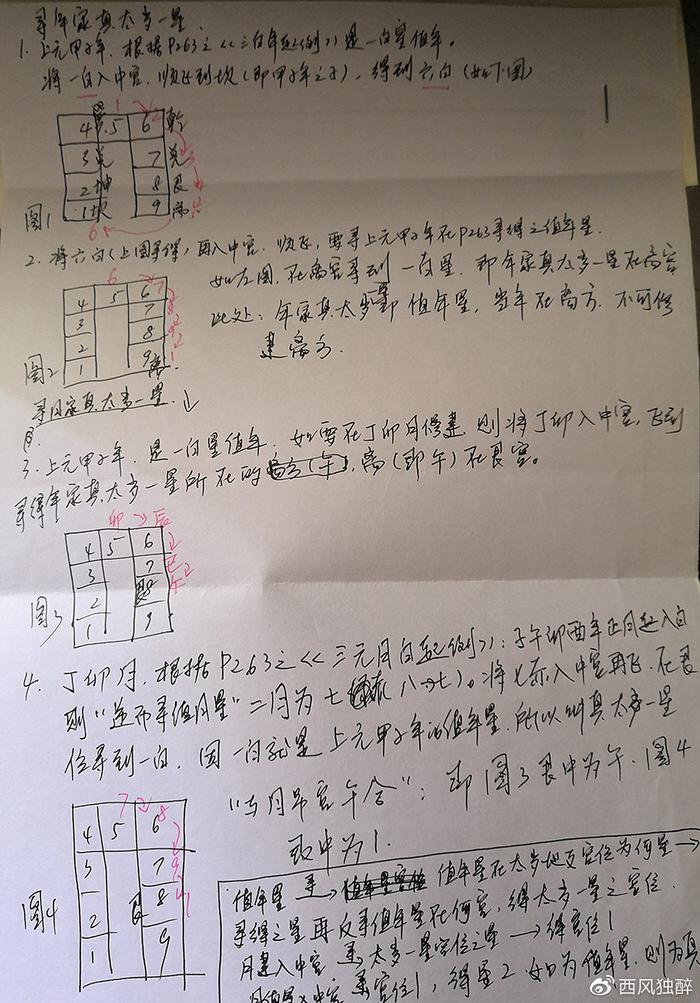 寻年家真太岁一星
1. 上元甲子年, 根据P263之<<三白年起例>>是一白星值年。
将一白入中宫. 顺飞到坎(即甲子年之子), 得到六白(如下图)
1
4 巽 5 6 乾
3 7 兑
2 坤 8 艮
1 坎 9 离
6
图1
2. 将六白(上图寻得)再入中宫. 顺飞, 要寻上元甲子年在P263寻得之值年星.
如左图. 在离宫寻到一白星. 即年家真太岁一星在离宫
此处: 年家真太岁星即值年星, 当年在离方. 不可修
建离方.
6 7
4 5 6 8
3 7 9
2 8
1 9 离 1
图2
寻月家真太岁一星 ↓
3. 上元甲子年, 是一白星值年. 如要在丁卯月修建, 则将丁卯入中宫, 飞到
寻得年家真太岁一星所在的离方(午), 离(即午)在艮宫。
卯 → 辰
4 5 6
3 7 巳
2 8 午
1 9
图3
4. 丁卯月, 根据P263之<<三元月白起例>>: 子午卯酉年正月起八白
则"逆而寻值月星"二月为七(八→七)。将七赤入中宫再飞. 在艮
位寻到一白. 因一白就是上元甲子年的值年星. 所以叫真太岁一星
"与月吊宫午合": 即图3艮中为午. 图4
艮中为1.
7 8
4 5 6 9
3 7
2 艮 8 1
1 9
图4
值年星 寻→ 值年星在太岁地支宫位为何星→
寻得之星再反寻值年星在何宫, 得太岁一星之宫位.
月建入中宫. 寻太岁一星宫位之星 → 得宫位1
寻宫位1, 得星2. 如为值年星, 则为真
西风独醉